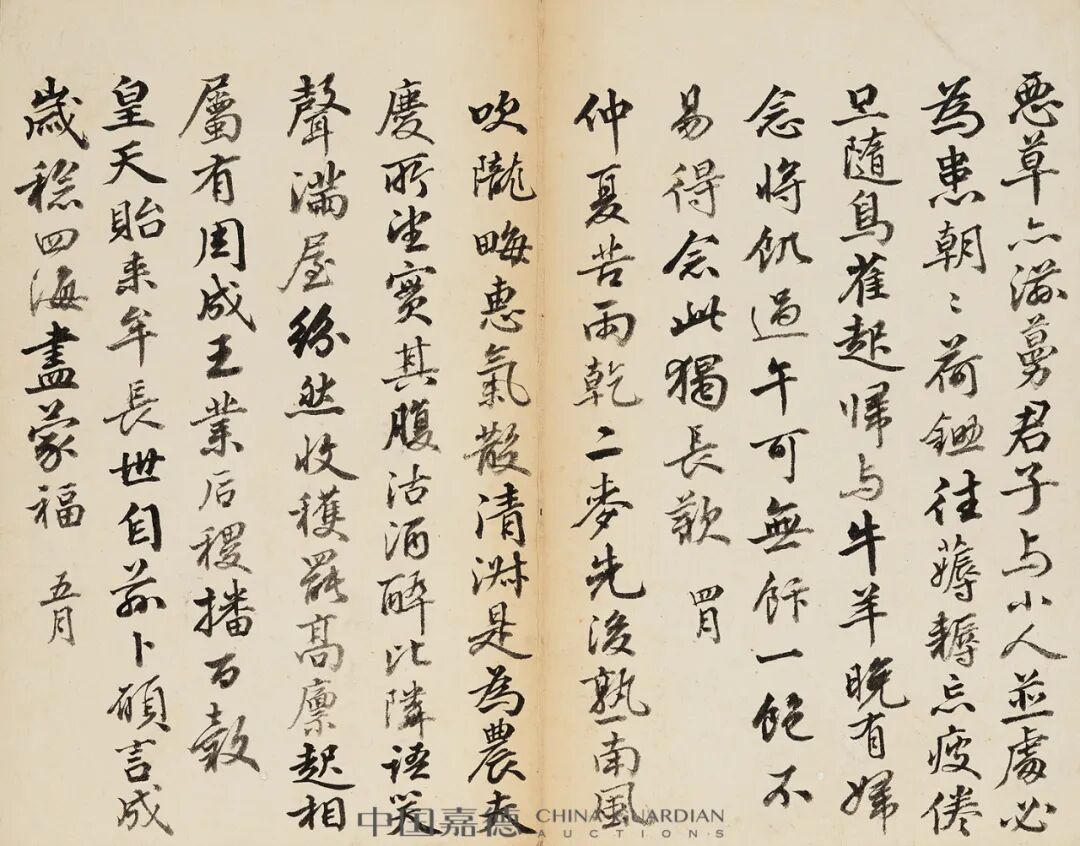 惡草亦滋蔓君子与小人並處必
為患朝〻荷鋤往薅耨忘疲倦
旦随鳥雀起歸与牛羊晚有婦
念將飢過午可無飰一飽不
易得念此獨長歎 四月
仲夏苦雨乾二麥先後熟南風
吹隴畮惠氣散清淑是為農夫
慶所望實其腹沽酒醉比隣語笑
聲滿屋紛然收穫罷高廩起相
屬有周成王業后稷播百穀
皇天貽来牟長世自茲卜願言成
歲稔四海盡蒙福 五月
中国嘉德 CHINA GUARDIAN
AUCTIONS